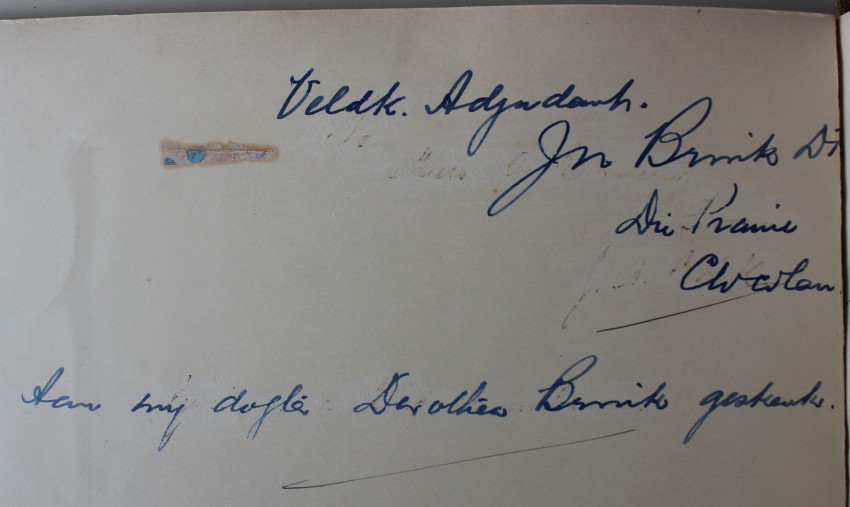 Veldk. Adjudant.
Jn Brink Dr
Die Prairie
Clocolan.
Aan my dogter Dorothea Brink geskenk.